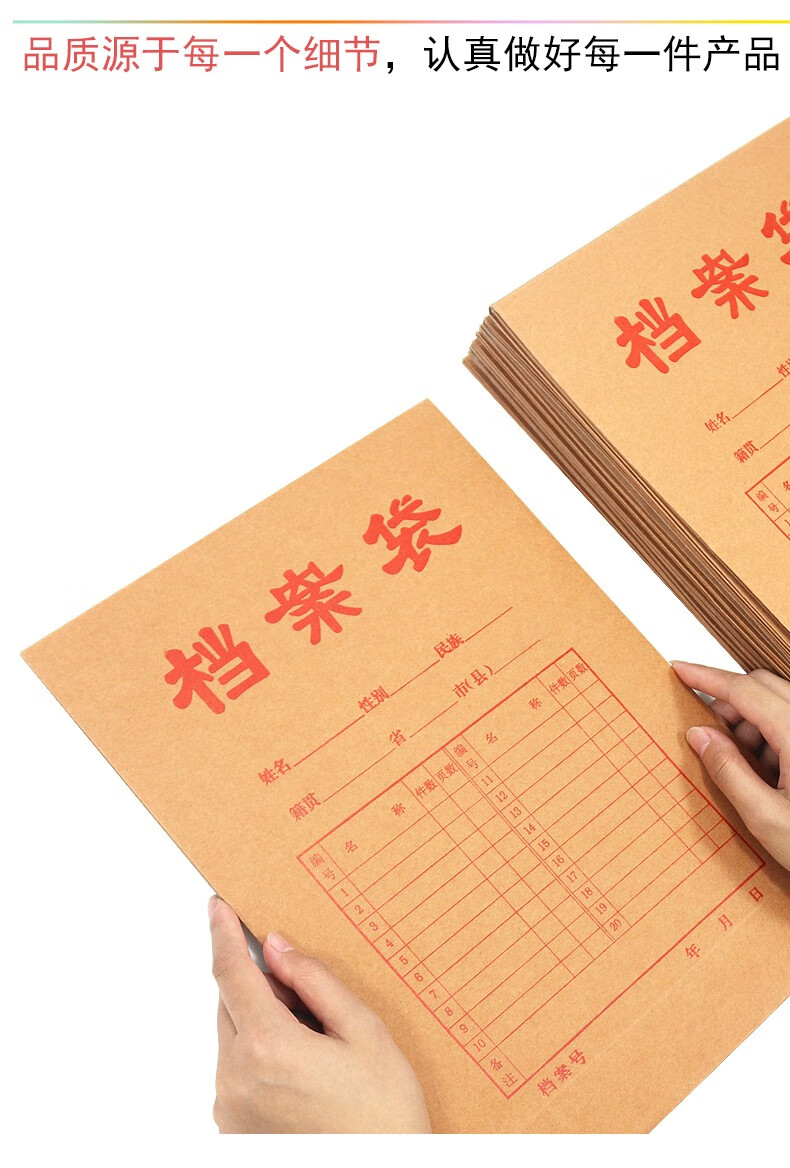 品质源于每一个细节，认真做好每一件产品
档案袋
姓名 性别 民族
籍贯 省 市(县)
编号 名称 件数 页数 编号 名称 件数 页数
1 11
2 12
3 13
4 14
5 15
6 16
7 17
8 18
9 19
10 20
备注
年 月 日
档案号
档案袋
姓名 性别
籍贯
编号 名
1